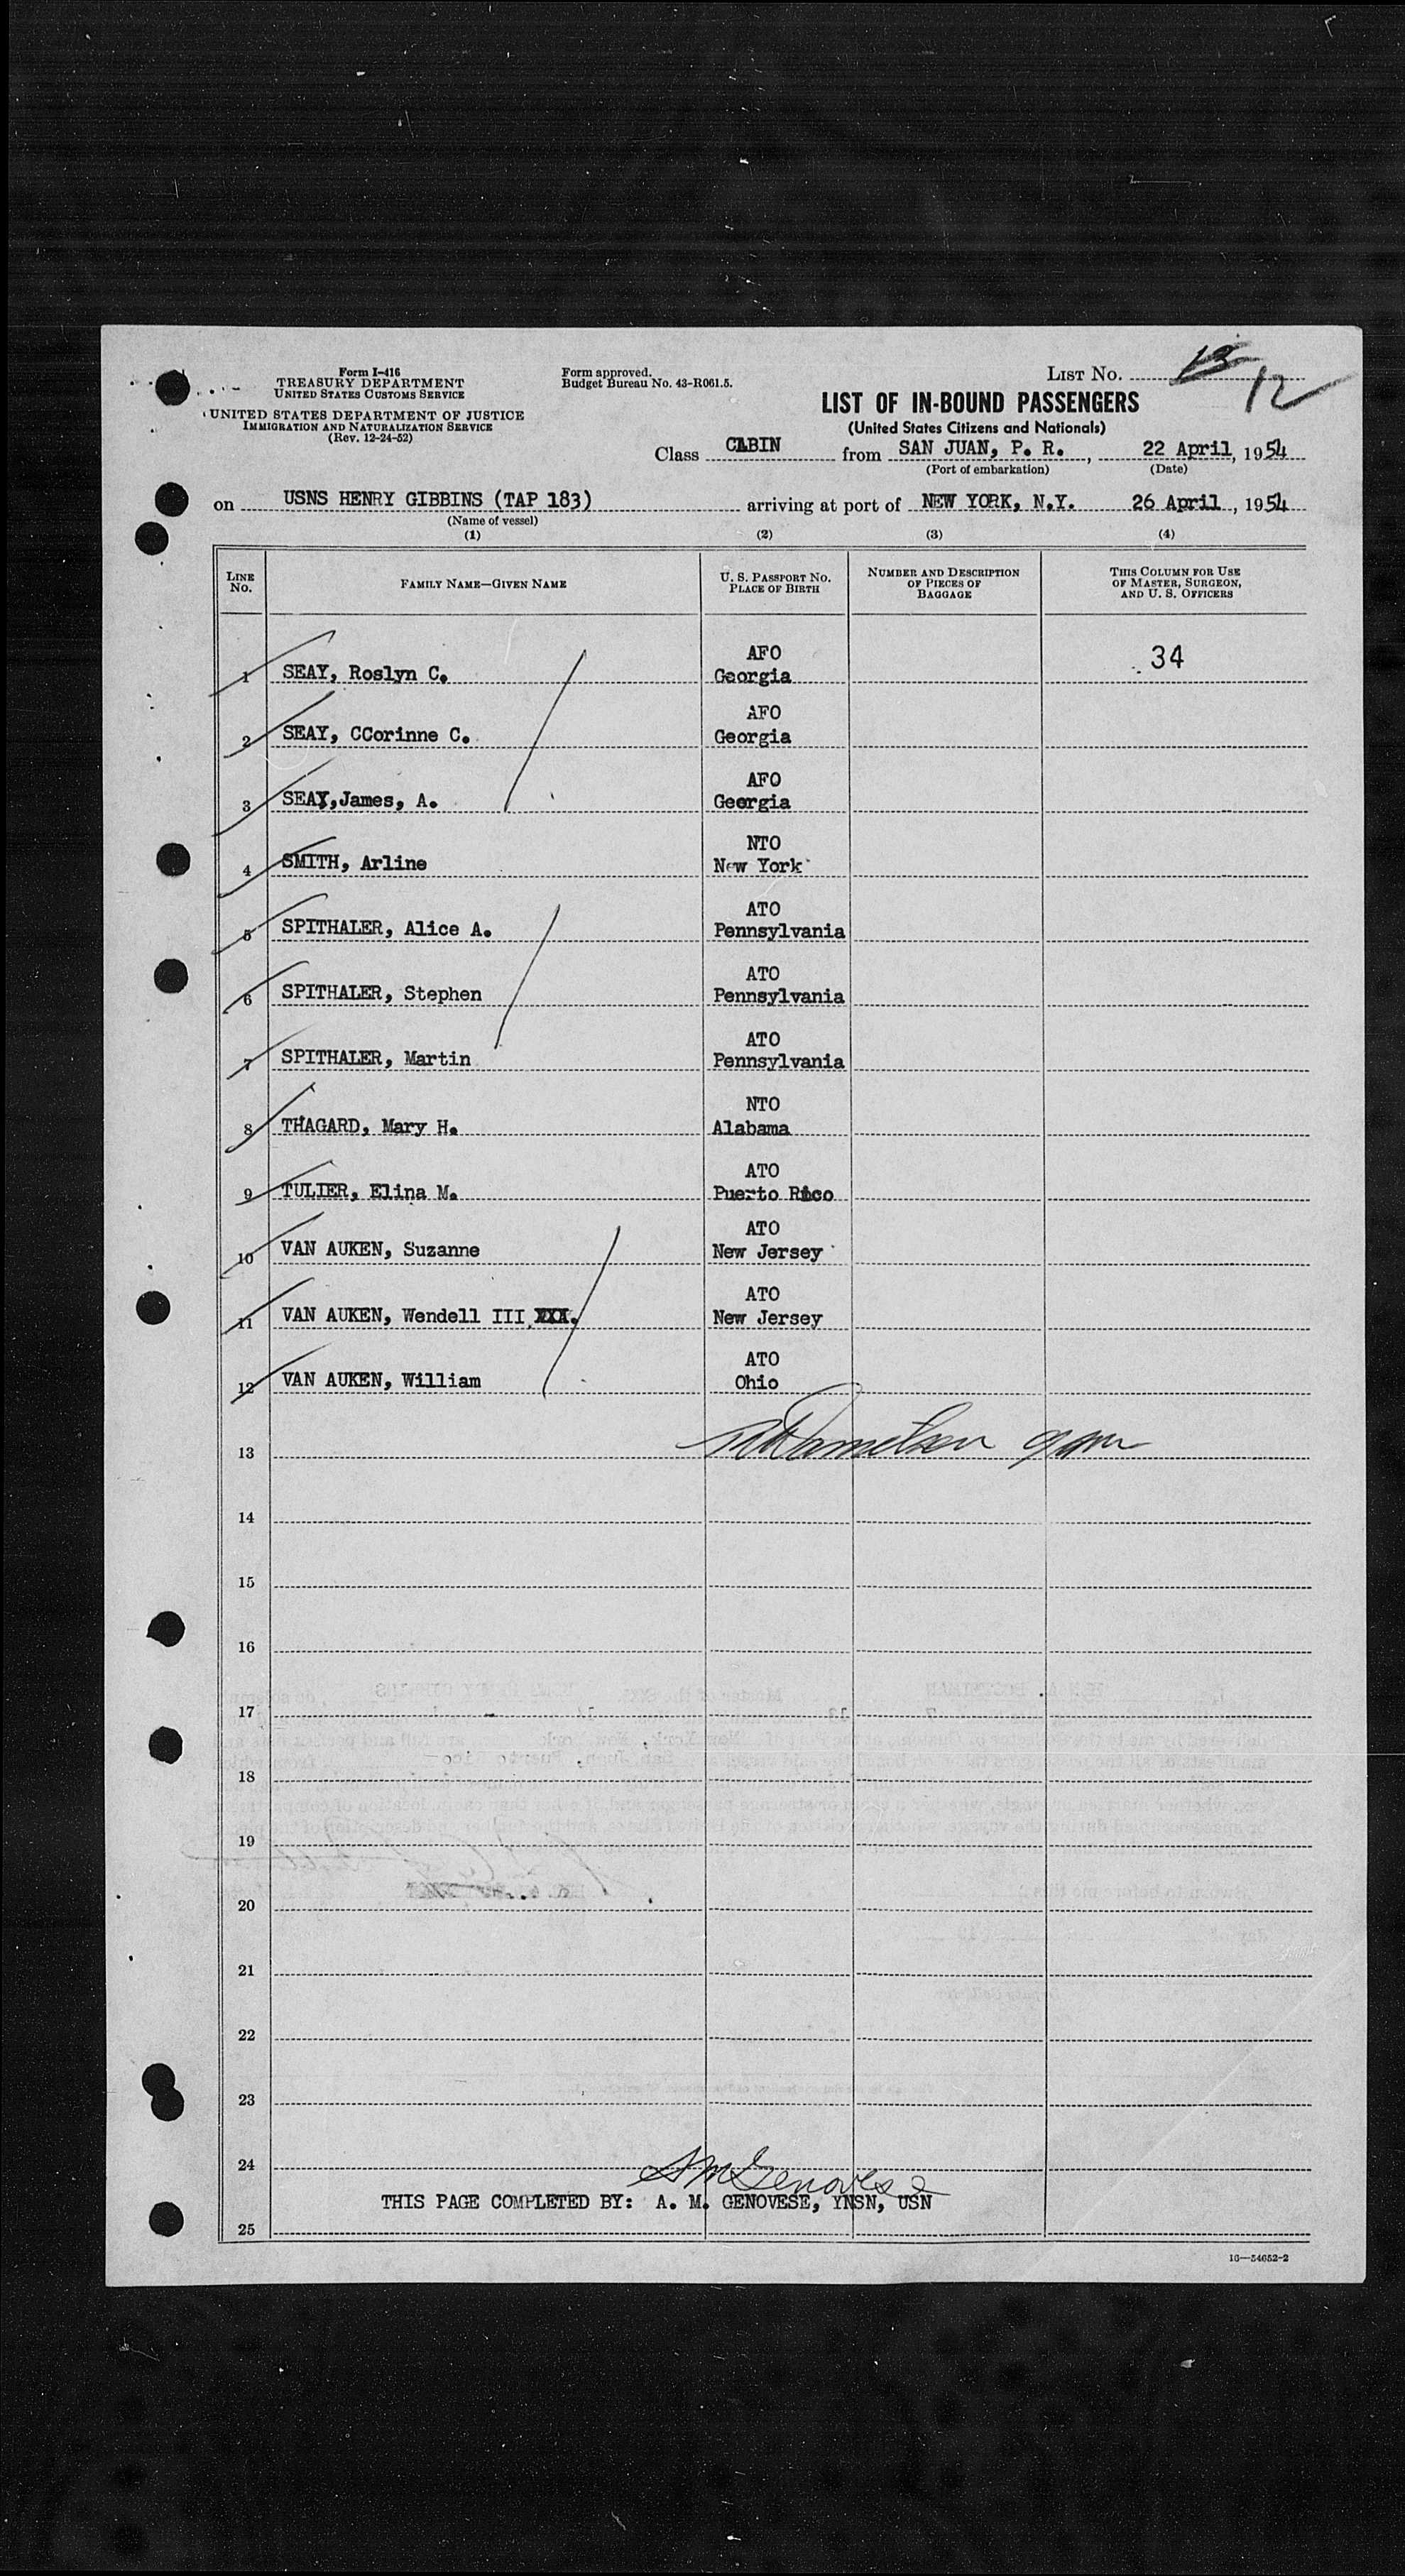 Form I-416
TREASURY DEPARTMENT
UNITED STATES CUSTOMS SERVICE
UNITED STATES DEPARTMENT OF JUSTICE
IMMIGRATION AND NATURALIZATION SERVICE
(Rev. 12-24-52)
Form approved.
Budget Bureau No. 43-R061.5.
LIST NO. 13 12
LIST OF IN-BOUND PASSENGERS
(United States Citizens and Nationals)
Class CABIN from SAN JUAN, P. R., 22 April, 1954
(Port of embarkation) (Date)
on USNS HENRY GIBBINS (TAP 183) arriving at port of NEW YORK, N.Y. 26 April, 1954
(Name of vessel)
(1) (2) (3) (4)
LINE NO. FAMILY NAME—GIVEN NAME U. S. PASSPORT NO. PLACE OF BIRTH NUMBER AND DESCRIPTION OF PIECES OF BAGGAGE THIS COLUMN FOR USE OF MASTER, SURGEON, AND U. S. OFFICERS
AFO 34
1 SEAY, Roslyn C. Georgia
AFO
2 SEAY, CCorinne C. Georgia
AFO
3 SEAY,James, A. Georgia
NTO
4 SMITH, Arline New York
ATO
5 SPITHALER, Alice A. Pennsylvania
ATO
6 SPITHALER, Stephen Pennsylvania
ATO
7 SPITHALER, Martin Pennsylvania
NTO
8 THAGARD, Mary H. Alabama
ATO
9 TULIER, Elina M. Puerto Rico
ATO
10 VAN AUKEN, Suzanne New Jersey
ATO
11 VAN AUKEN, Wendell III XXX. New Jersey
ATO
12 VAN AUKEN, William Ohio
13
14
15
16
17
18
19
20
21
22
23
24
A M Genovese
THIS PAGE COMPLETED BY: A. M. GENOVESE, YNSN, USN
25
16—54652-2